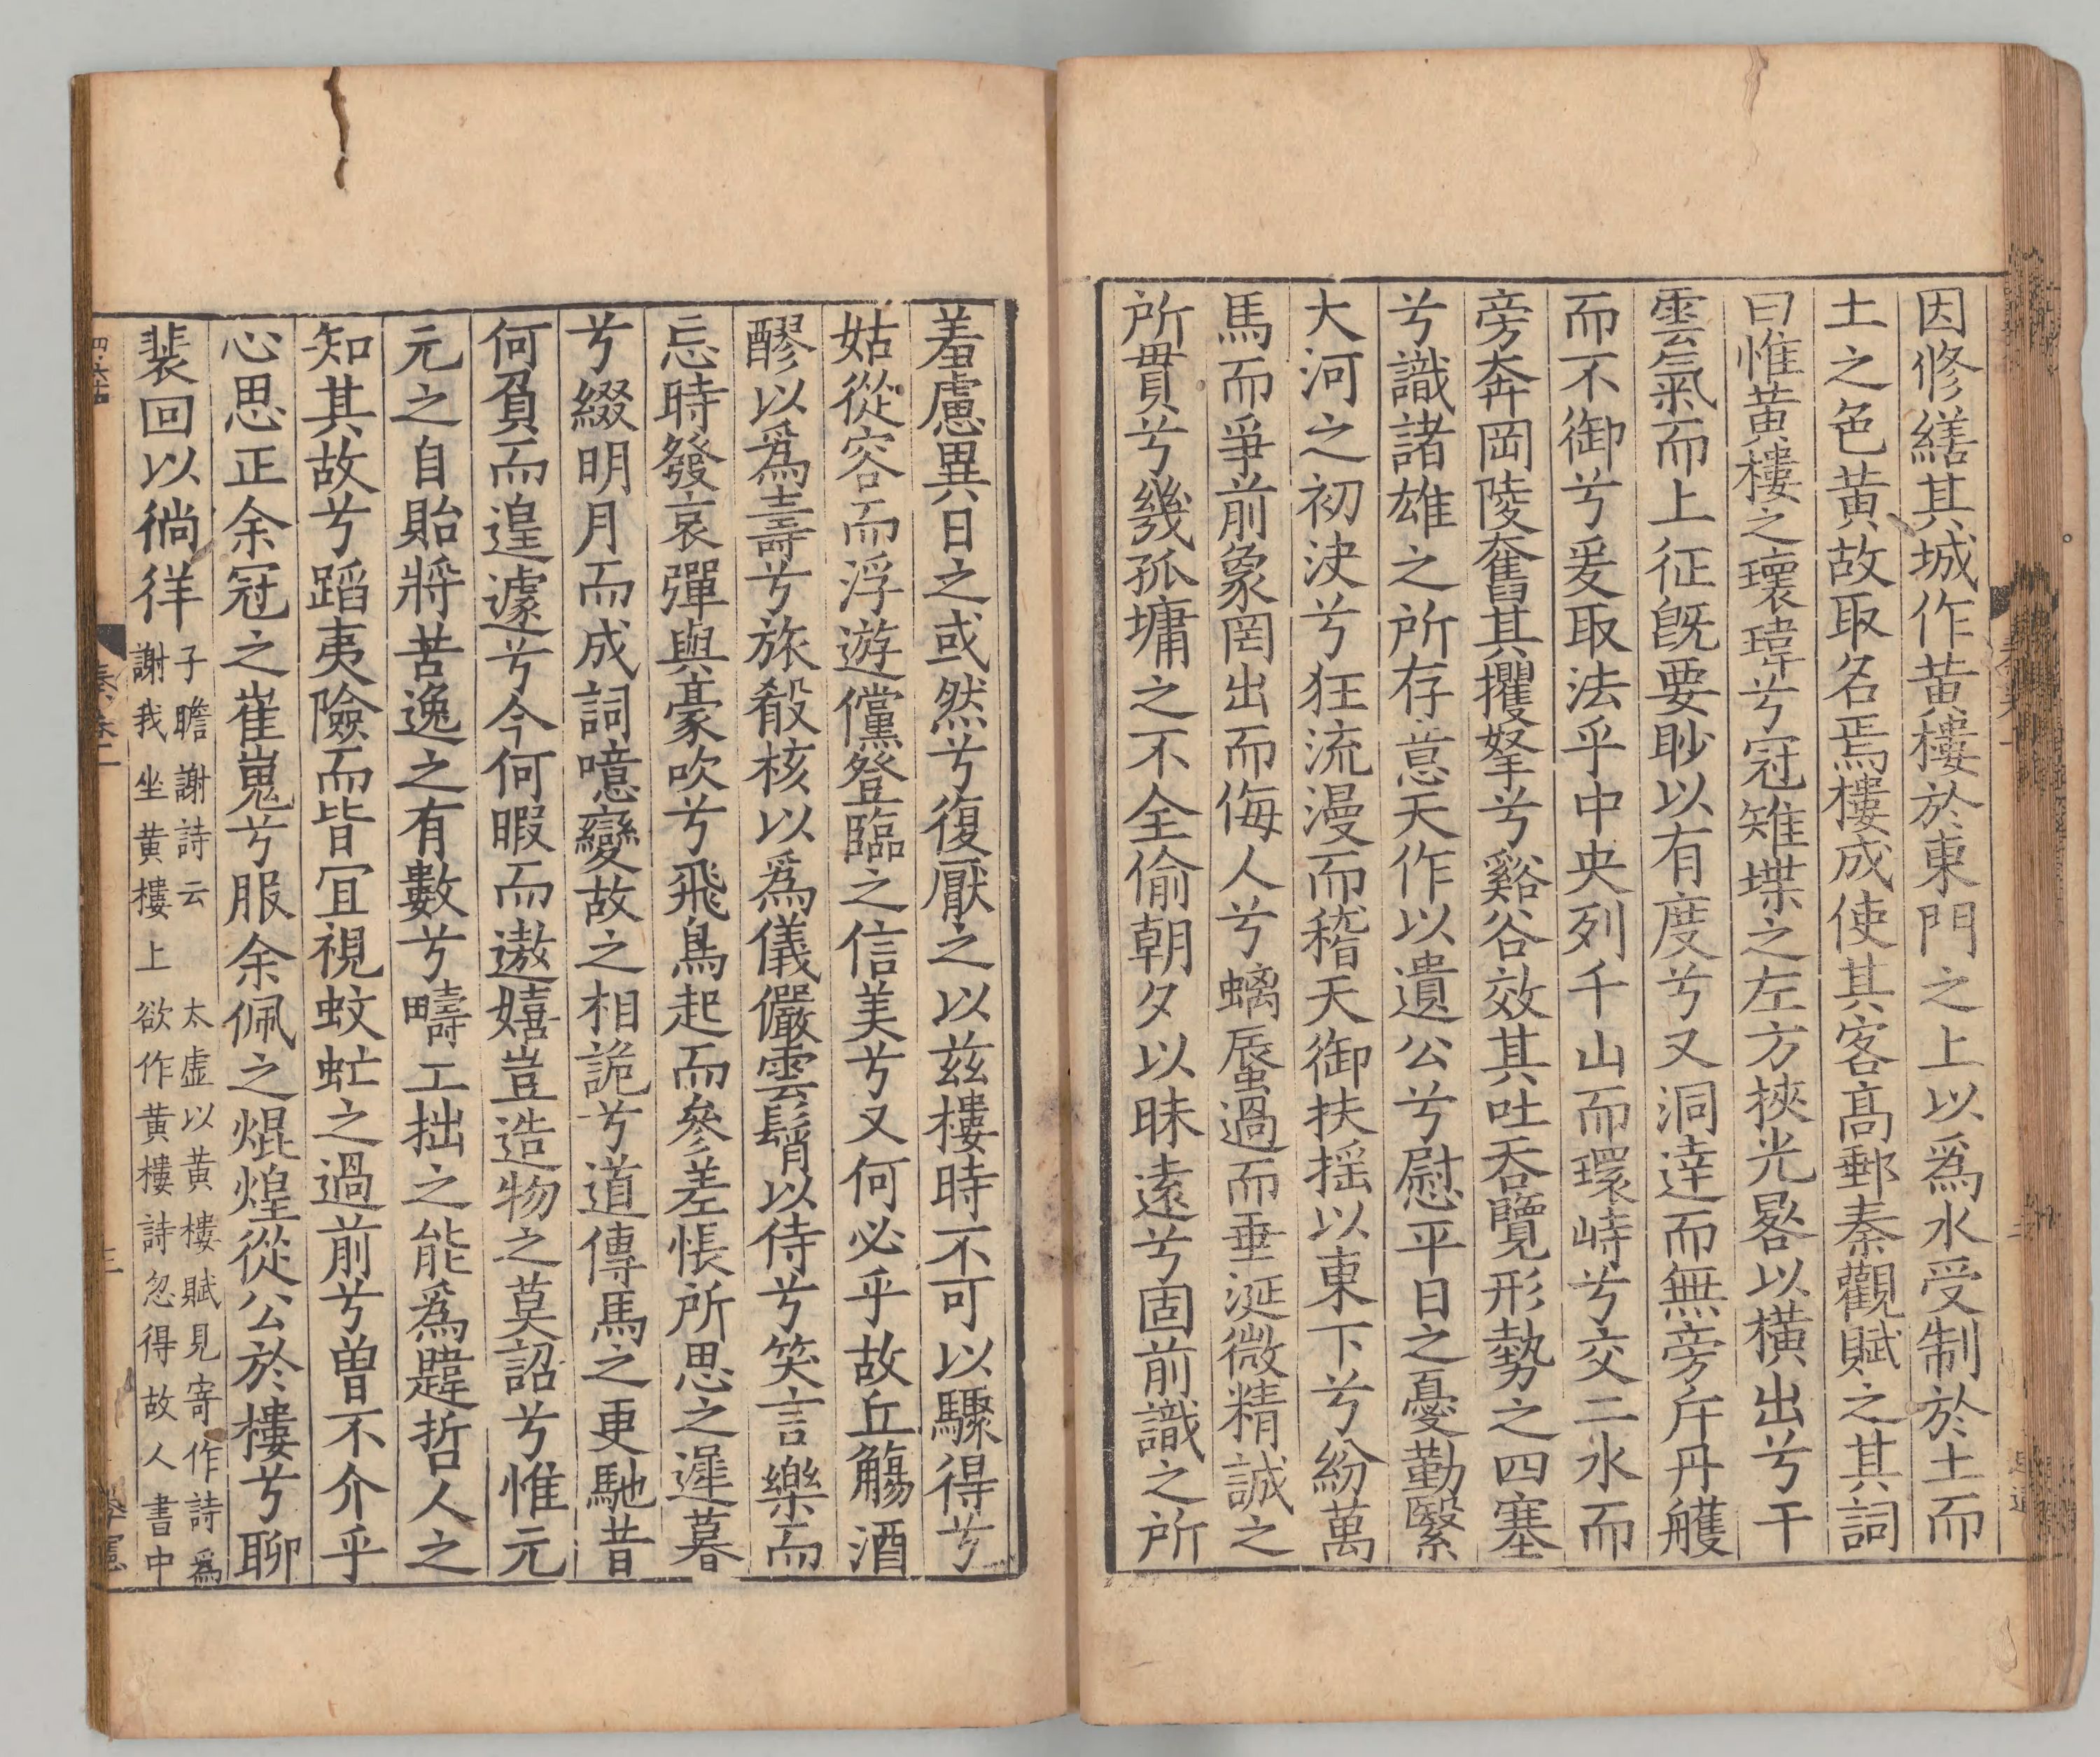 因修繕其城作黄樓於東門之上以爲水受制於土而
土之色黄故取名焉樓成使其客髙郵秦觀賦之其詞
曰惟黄樓之瓌瑋兮冠雉堞之左方挾光晷以横出兮干
雲氣而上征旣要眇以有度兮又洞達而無旁斥丹雘
而不御兮爰取法乎中央列千山而環峙兮交二水而
旁奔岡陵奮其攫拏兮谿谷效其吐吞覽形勢之四塞
兮識諸雄之所存意天作以遺公兮慰平日之憂勤繄
大河之初決兮狂流漫而稽天御扶揺以東下兮紛萬
馬而爭前象罔出而侮人兮螭蜃過而垂涎微精誠之
所貫兮幾孤墉之不全偷朝夕以昧逺兮固前識之所
羞慮異日之或然兮復厭之以兹樓時不可以驟得兮
姑從容而浮遊儻登臨之信美兮又何必乎故丘觴酒
醪以爲壽兮旅殽核以爲儀儼雲髾以侍兮笑言樂而
忘時發哀彈與豪吹兮飛鳥起而參差悵所思之遲暮
兮綴明月而成詞噫變故之相詭兮遒傳馬之更馳昔
何負而遑遽兮今何暇而遨嬉豈造物之莫詔兮惟元
元之自貽將苦逸之有數兮疇工拙之能爲韙哲人之
知其故兮蹈夷險而皆冝視蚊虻之過前兮曽不介乎
心思正余冠之崔嵬兮服余佩之焜煌從公於樓兮聊
裴回以徜徉
子瞻謝詩云　太虚以黄樓賦見寄作詩爲
謝我坐黄樓上欲作黄樓詩忽得故人書中
秦卷一
三